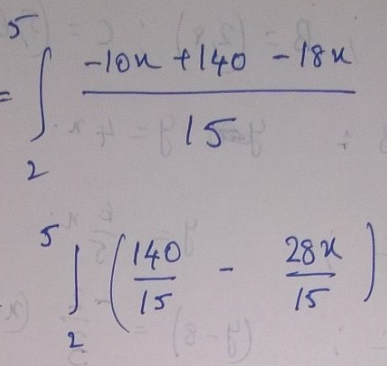 5
= ∫ (-10x + 140 - 18x) / 15
2
5
∫ (140/15 - 28x/15)
2